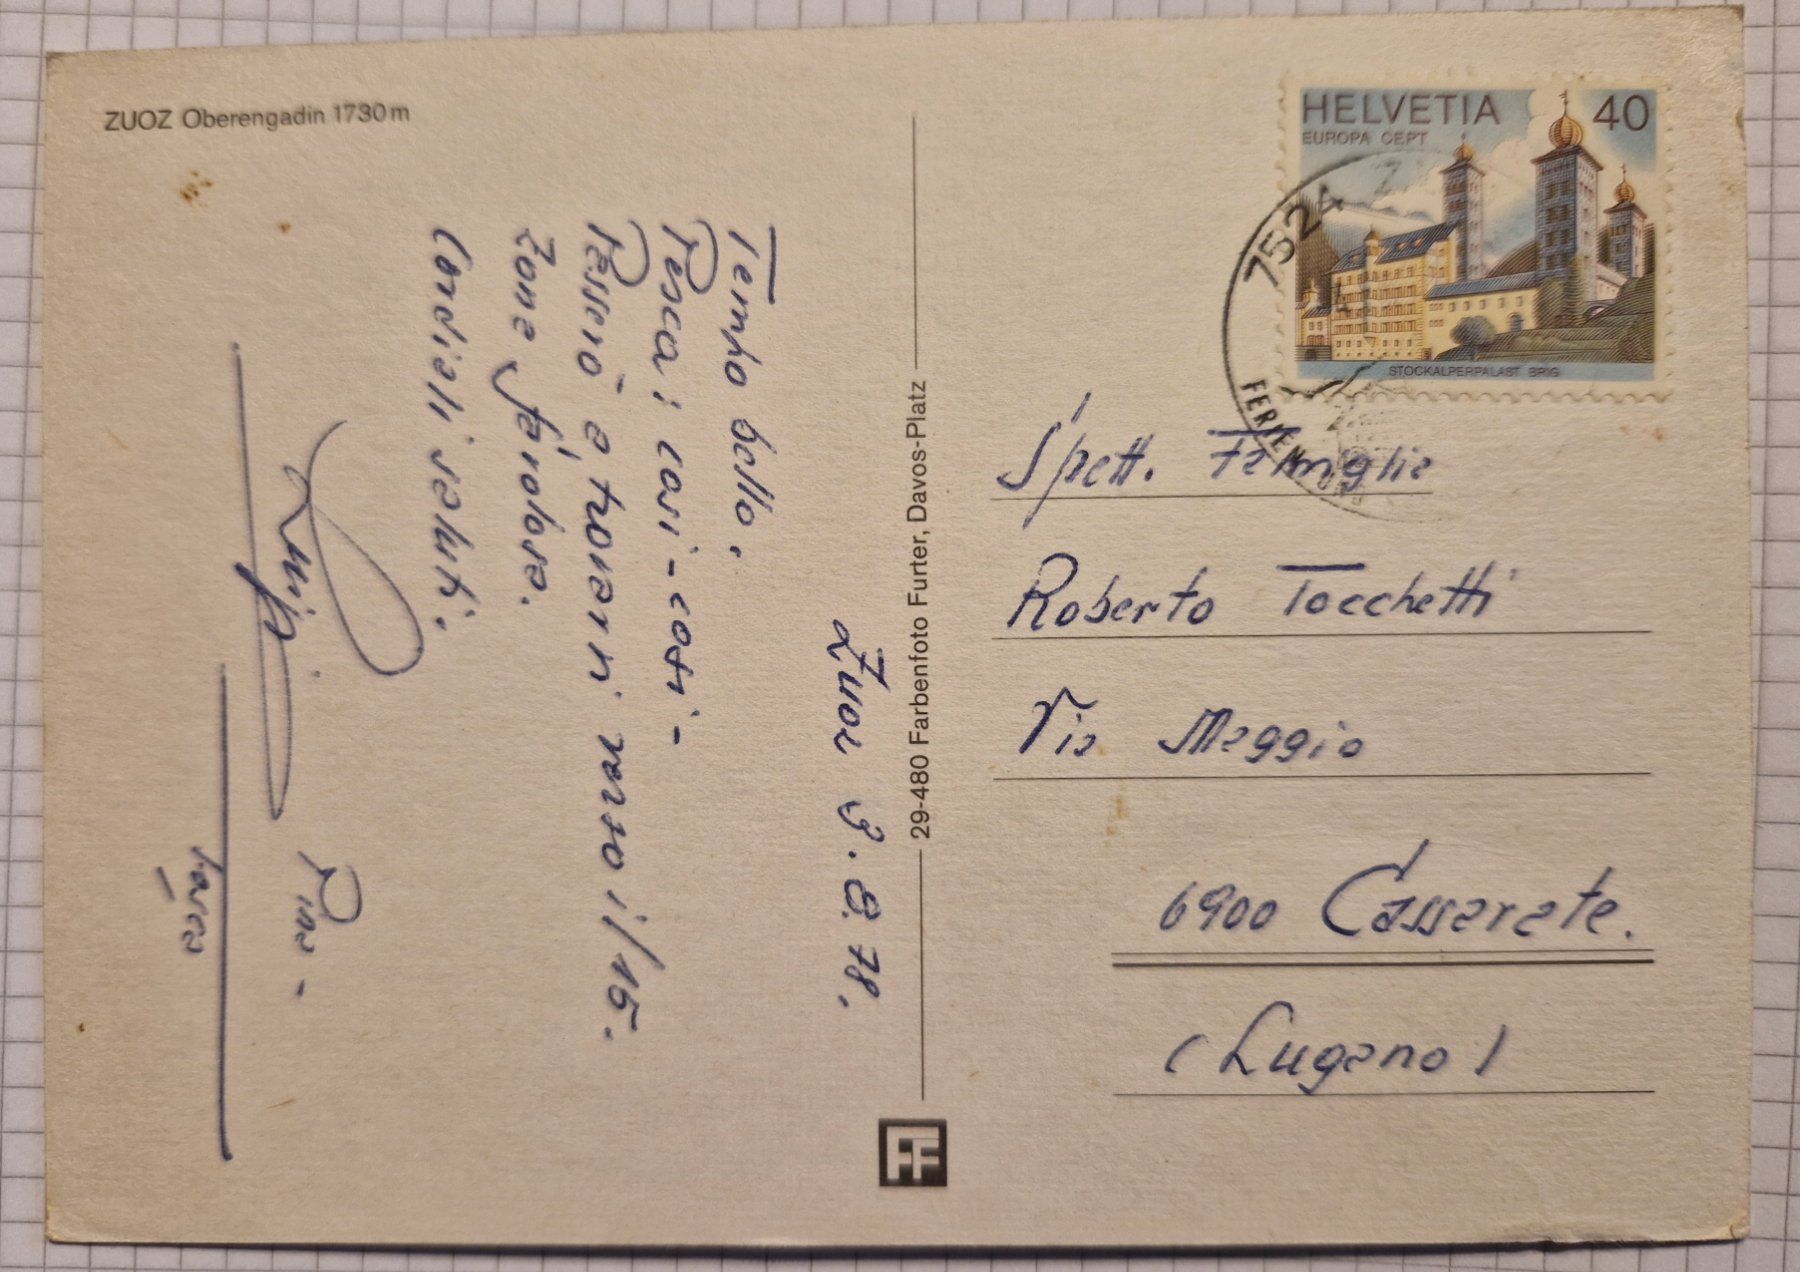 ZUOZ Oberengadin 1730 m
Zuoz 9.8.78.
Tempo bello,
Pesca: così-così-
Passio e trovarvi verso il 15.
Zona favolosa.
Cordiali saluti.
Luigi
Pina -
29-480 Farbenfoto Furter, Davos-Platz
FF
HELVETIA 40
EUROPA CEPT
STOCKALPERPALAST BRIG
7524 Z
FERIEN
Spett. Famiglia
Roberto Tocchetti
Via Maggio
6900 Cassarate.
(Lugano)